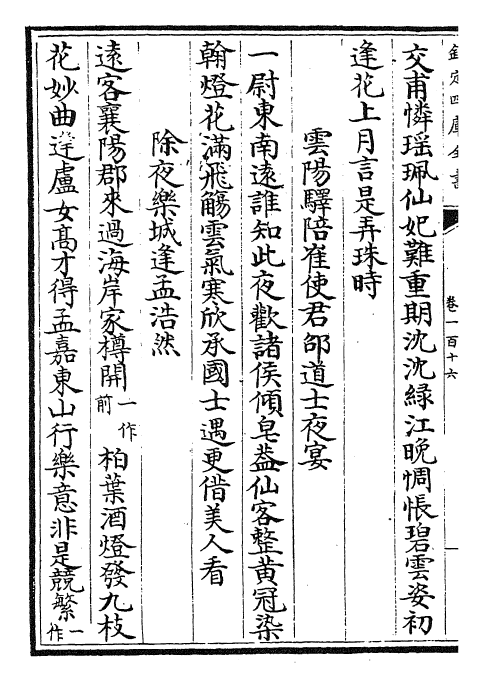 欽定四庫全書
卷一百十六
交甫憐瑶珮仙妃難重期沈沈綠江晚惆悵碧雲姿初
逢花上月言是弄珠時
雲陽驛陪崔使君邵道士夜宴
一尉東南遠誰知此夜歡諸侯傾皂葢仙客整黄冠染
翰燈花滿飛觴雲氣寒欣承國士遇更借美人看
除夜樂城逢孟浩然
遠客襄陽郡來過海岸家樽開一作前柏葉酒燈發九枝
花妙曲逹盧女髙才得孟嘉東山行樂意非是競繁一作